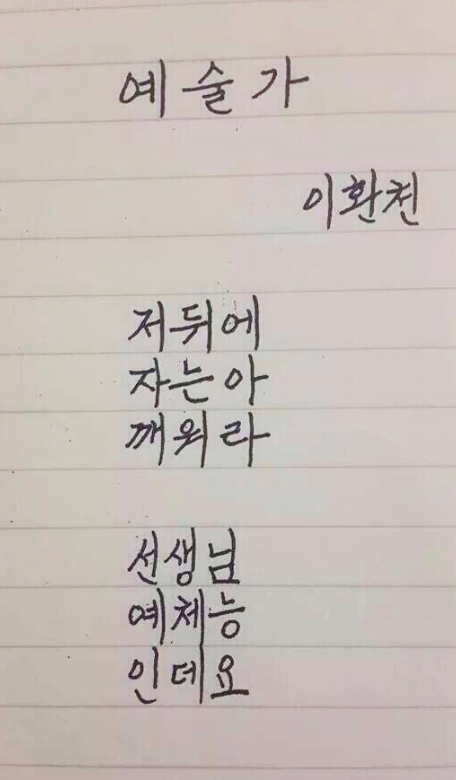 예술가
이환천
저뒤에
자는아
깨워라
선생님
예체능
인데요